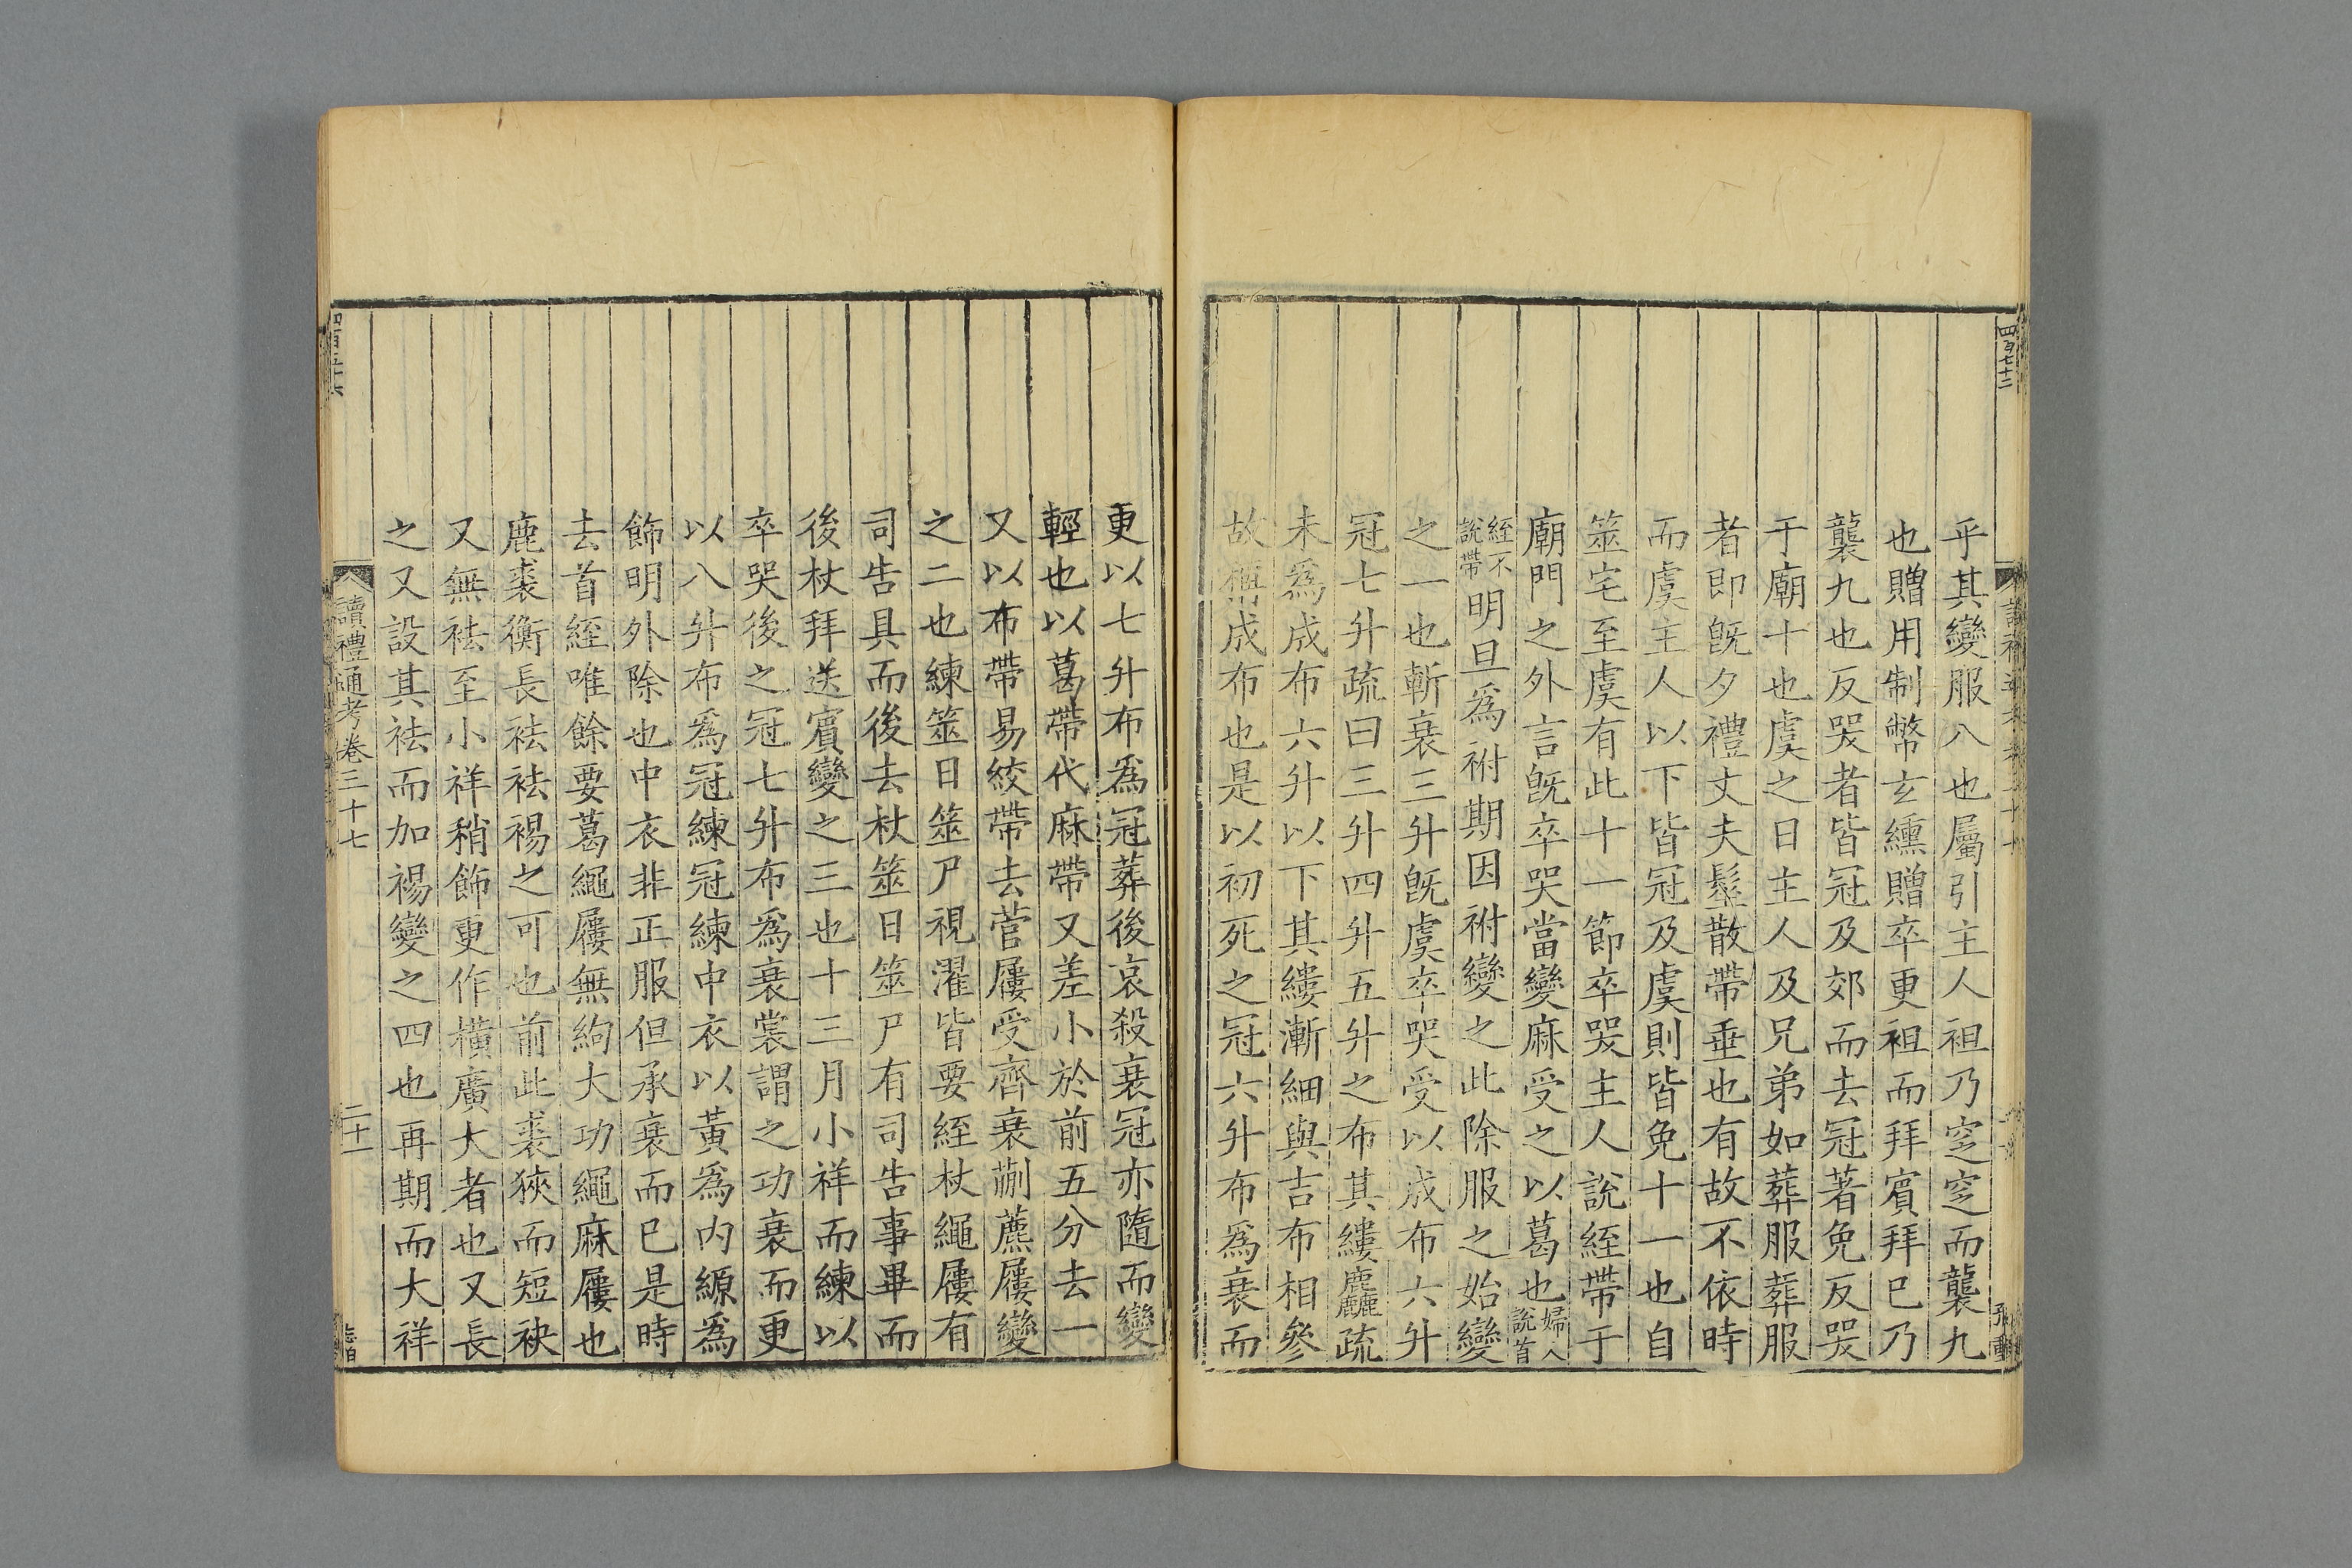 四百七十二
乎其變服八也屬引主人袒乃窆窆而襲九
也贈用制幣玄纁贈卒更袒而拜賓拜已乃
襲九也反哭者皆冠及郊而去冠著免反哭
于廟十也虞之日主人及兄弟如葬服葬服
者即旣夕禮丈夫髽散帶垂也有故不依時
而虞主人以下皆冠及虞則皆免十一也自
筮宅至虞有此十一節卒哭主人說絰帶于
廟門之外言旣卒哭當變麻受之以葛也婦人說首
絰不說帶明旦爲祔期因祔變之此除服之始變
之一也斬衰三升旣虞卒哭受以成布六升
冠七升疏曰三升四升五升之布其縷麤疏
未爲成布六升以下其縷漸細與吉布相參
故稱成布也是以初死之冠六升布爲衰而
更以七升布爲冠葬後哀殺衰冠亦隨而變
輕也以葛帶代麻帶又差小於前五分去一
又以布帶易絞帶去菅屨受齊衰蒯藨屨變
之二也練筮日筮尸視濯皆要絰杖繩屨有
司告具而後去杖筮日筮尸有司告事畢而
後杖拜送賓變之三也十三月小祥而練以
卒哭後之冠七升布爲衰裳謂之功衰而更
以八升布爲冠練冠練中衣以黃爲內縓爲
飾明外除也中衣非正服但承衰而已是時
去首絰唯餘要葛繩屨無絇大功繩麻屨也
鹿裘衡長袪袪裼之可也前此裘狹而短袂
又無袪至小祥稍飾更作橫廣大者也又長
之又設其袪而加裼變之四也再期而大祥
讀禮通考卷三十七
二十一